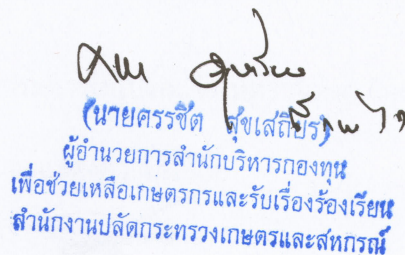 (นายศรรชิต สุขเสถียร)
ผู้อำนวยการสำนักบริหารกองทุน
เพื่อช่วยเหลือเกษตรกรและรับเรื่องร้องเรียน
สำนักงานปลัดกระทรวงเกษตรและสหกรณ์